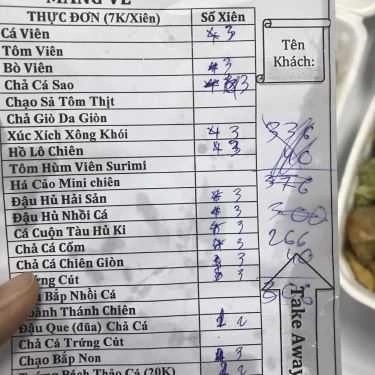 MANG VỀ
THỰC ĐƠN (7K/Xiên) Số Xiên
Cá Viên 3
Tôm Viên
Bò Viên 3
Chả Cá Sao 3
Chạo Sả Tôm Thịt
Chả Giò Da Giòn
Xúc Xích Xông Khói 3
Hồ Lô Chiên 3
Tôm Hùm Viên Surimi
Há Cảo Mini chiên
Đậu Hủ Hải Sản 3
Đậu Hủ Nhồi Cá 3
Cá Cuộn Tàu Hủ Ki 3
Chả Cá Cốm 3
Chả Cá Chiên Giòn 3
Cút 3
Bắp Nhồi Cá
Thánh Chiên
Đậu Que (đũa) Chả Cá 2
Chả Cá Trứng Cút
Chạo Bắp Non 3
Trứng Bách Thảo Cá (20K) 2
Tên
Khách:
336
40
376
300
266
40
Take Away